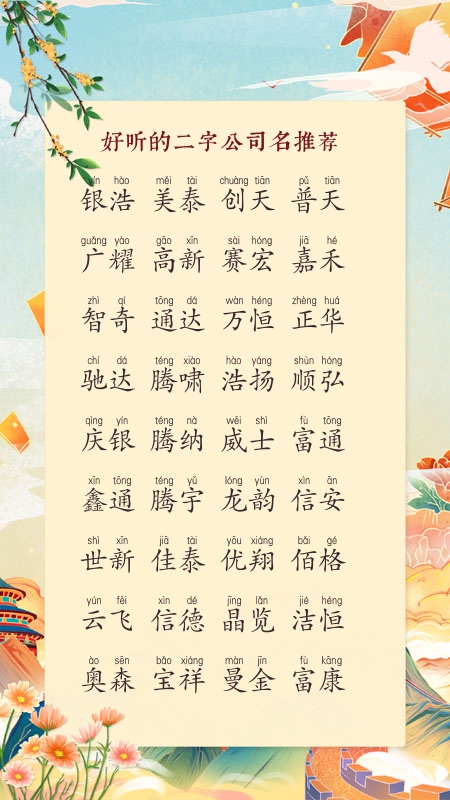 好听的二字公司名推荐
yín hào měi tài chuàng tiān pǔ tiān
银浩 美泰 创天 普天
guǎng yào gāo xīn sài hóng jiā hé
广耀 高新 赛宏 嘉禾
zhì qí tōng dá wàn héng zhèng huá
智奇 通达 万恒 正华
chí dá téng xiào hào yáng shùn hóng
驰达 腾啸 浩扬 顺弘
qìng yín téng nà wēi shì fù tōng
庆银 腾纳 威士 富通
xīn tōng téng yǔ lóng yùn xìn ān
鑫通 腾宇 龙韵 信安
shì xīn jiā tài yōu xiáng bǎi gé
世新 佳泰 优翔 佰格
yún fēi xìn dé jīng lǎn jié héng
云飞 信德 晶览 洁恒
ào sēn bǎo xiáng màn jīn fù kāng
奥森 宝祥 曼金 富康